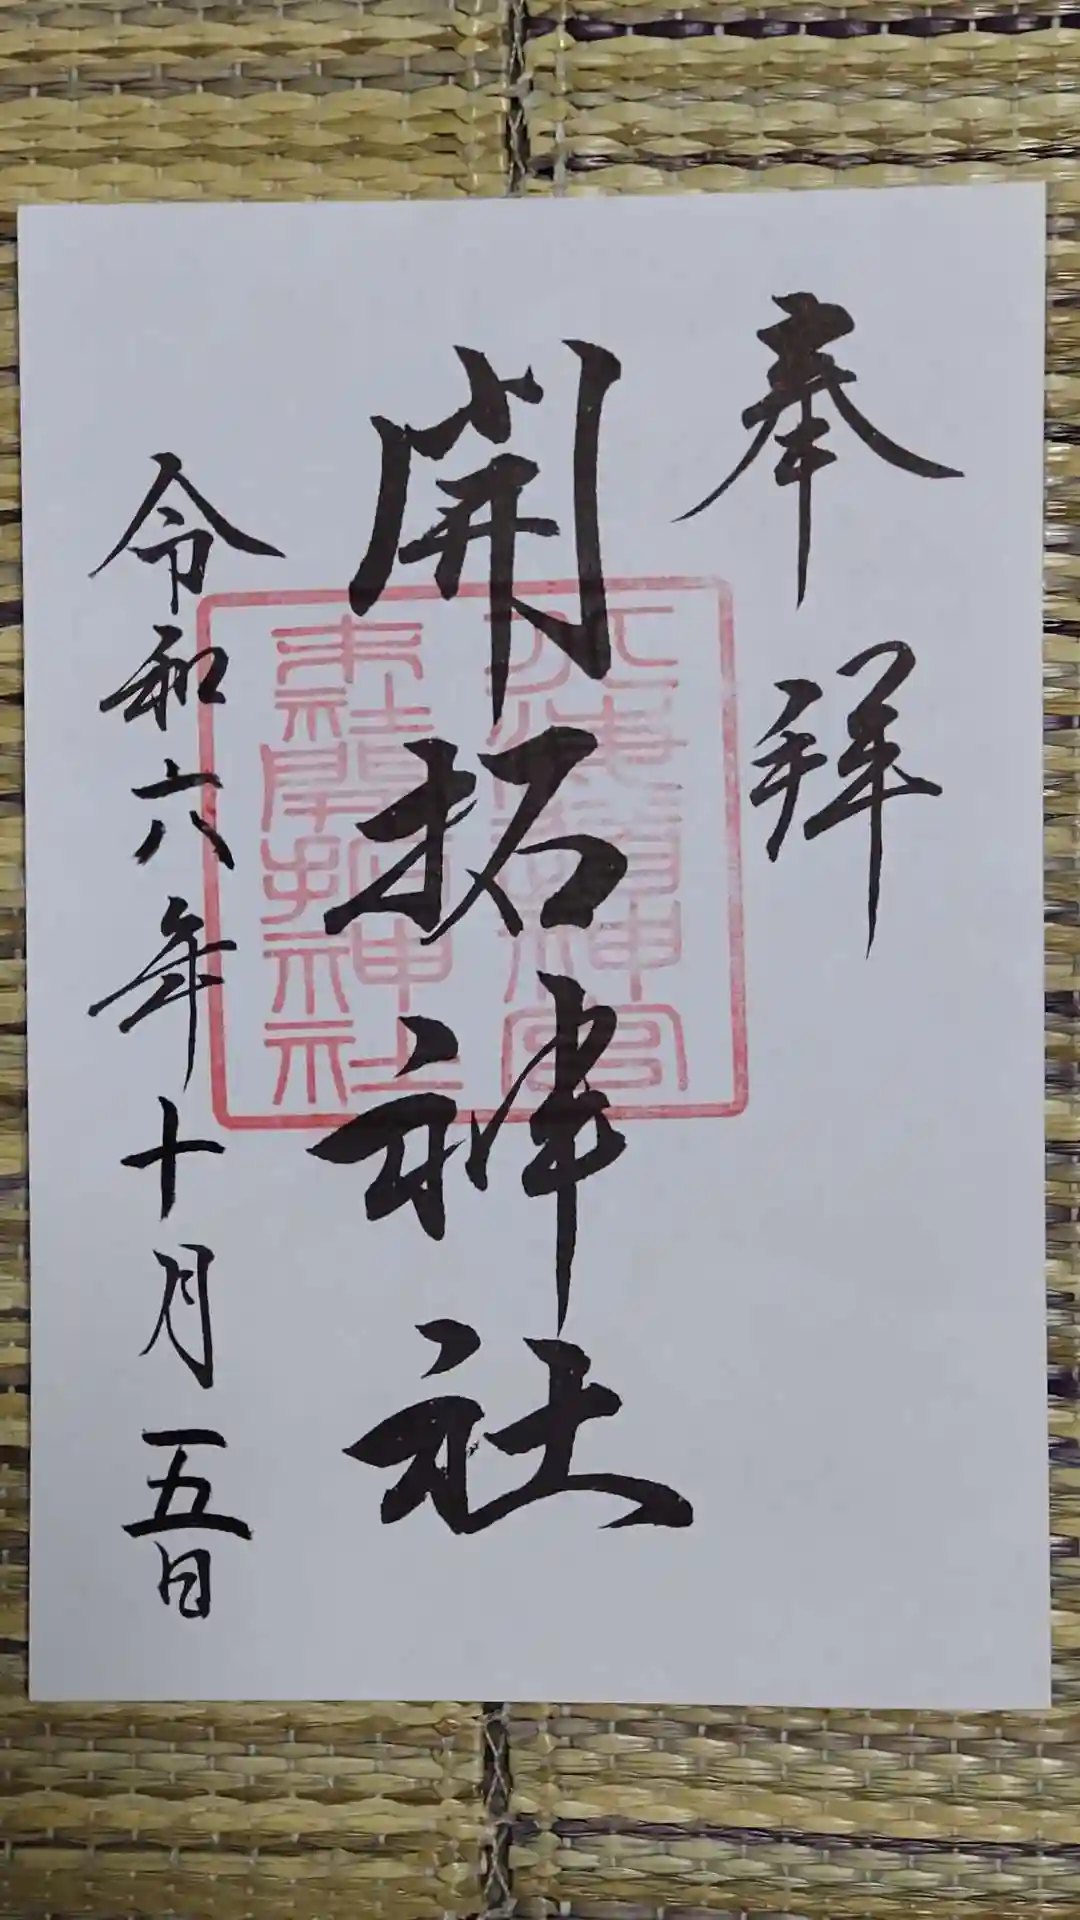 奉拝
開拓神社
北海道神宮
末社開拓神社
令和六年十月五日